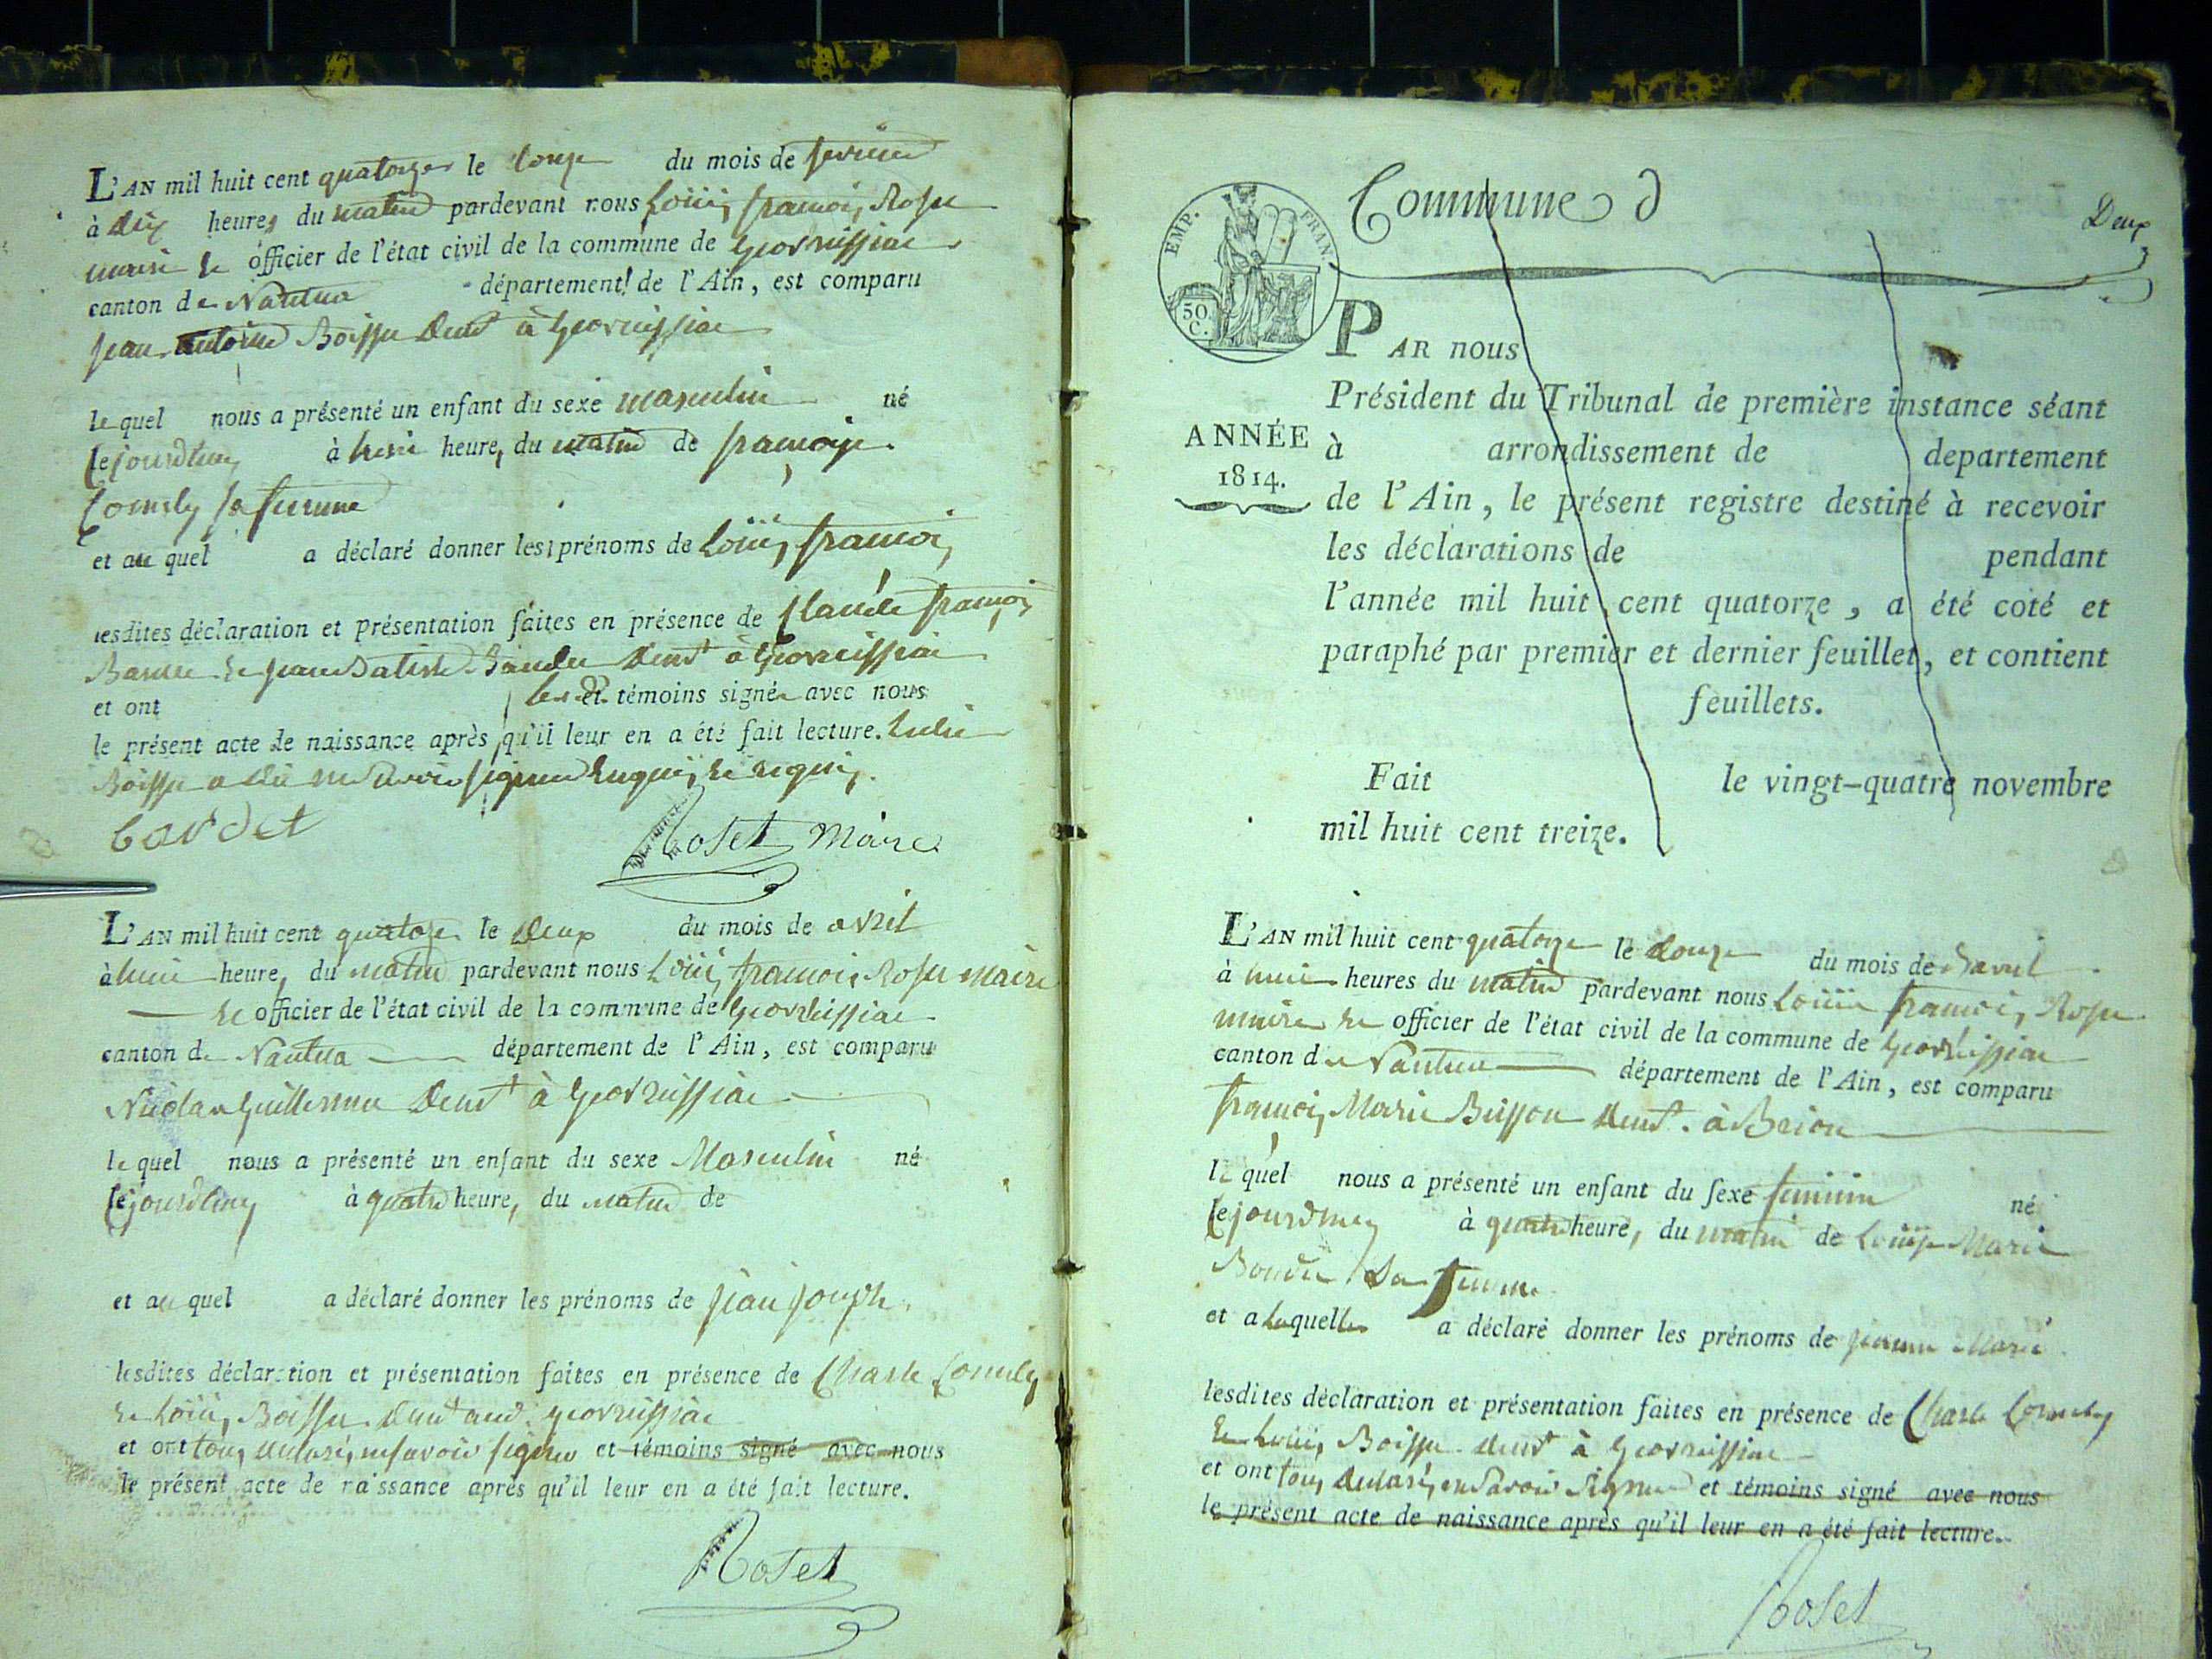 L'AN mil huit cent quatorze le douze du mois de fevrier
à dix heures du matin pardevant nous Louis françois Roset
maire et officier de l'état civil de la commune de Geovreissiac
canton de Nantua département de l'Ain, est comparu
jean antoine Boisson demt à Geovreissiac
le quel nous a présenté un enfant du sexe masculin né
cejourdhuy à heure, du matin de françoise
sa femme
et au quel a déclaré donner les prénoms de Louis françois
lesdites déclaration et présentation faites en présence de Claude françois
et jean Batiste demt à Geovreissiac
et ont led. et témoins signé avec nous
le présent acte de naissance après qu'il leur en a été fait lecture. ledit
a dit ne savoir signer enquis et requis.
bardet
Roset Maire
L'AN mil huit cent quatorze le deux du mois de avril
à heure, du matin pardevant nous Louis françois Roset maire
et officier de l'état civil de la commune de Geovreissiac
canton de Nantua département de l'Ain, est comparu
Nicolas Guillermet demt à Geovreissiac
le quel nous a présenté un enfant du sexe Masculin né
cejourdhuy à quatre heure, du matin de
et au quel a déclaré donner les prénoms de jean joseph
lesdites déclaration et présentation faites en présence de Charle
et Louis demt aud. Geovreissiac
et ont tous declaré ne savoir signer et témoins signé avec nous
le présent acte de naissance après qu'il leur en a été fait lecture.
Roset
Commune d
Deux
EMP. FRAN.
50 C.
PAR nous
Président du Tribunal de première instance séant
ANNÉE 1814.
à arrondissement de departement
de l'Ain, le présent registre destiné à recevoir
les déclarations de pendant
l'année mil huit cent quatorze, a été coté et
paraphé par premier et dernier feuillet, et contient
feuillets.
Fait le vingt-quatre novembre
mil huit cent treize.
L'AN mil huit cent quatorze le douze du mois de d'avril
à heures du matin pardevant nous Louis françois Roset
maire et officier de l'état civil de la commune de Geovreissiac
canton de Nantua département de l'Ain, est comparu
françois Marie Buisson demt. à Brion
le quel nous a présenté un enfant du sexe feminin né
cejourdhuy à quatre heure, du matin de Louise Marie
sa femme
et a laquelle a déclaré donner les prénoms de jeanne Marie
lesdites déclaration et présentation faites en présence de Charle
et Louis demt à Geovreissiac
et ont tous declaré ne savoir signer et témoins signé avec nous
le présent acte de naissance après qu'il leur en a été fait lecture.
Roset